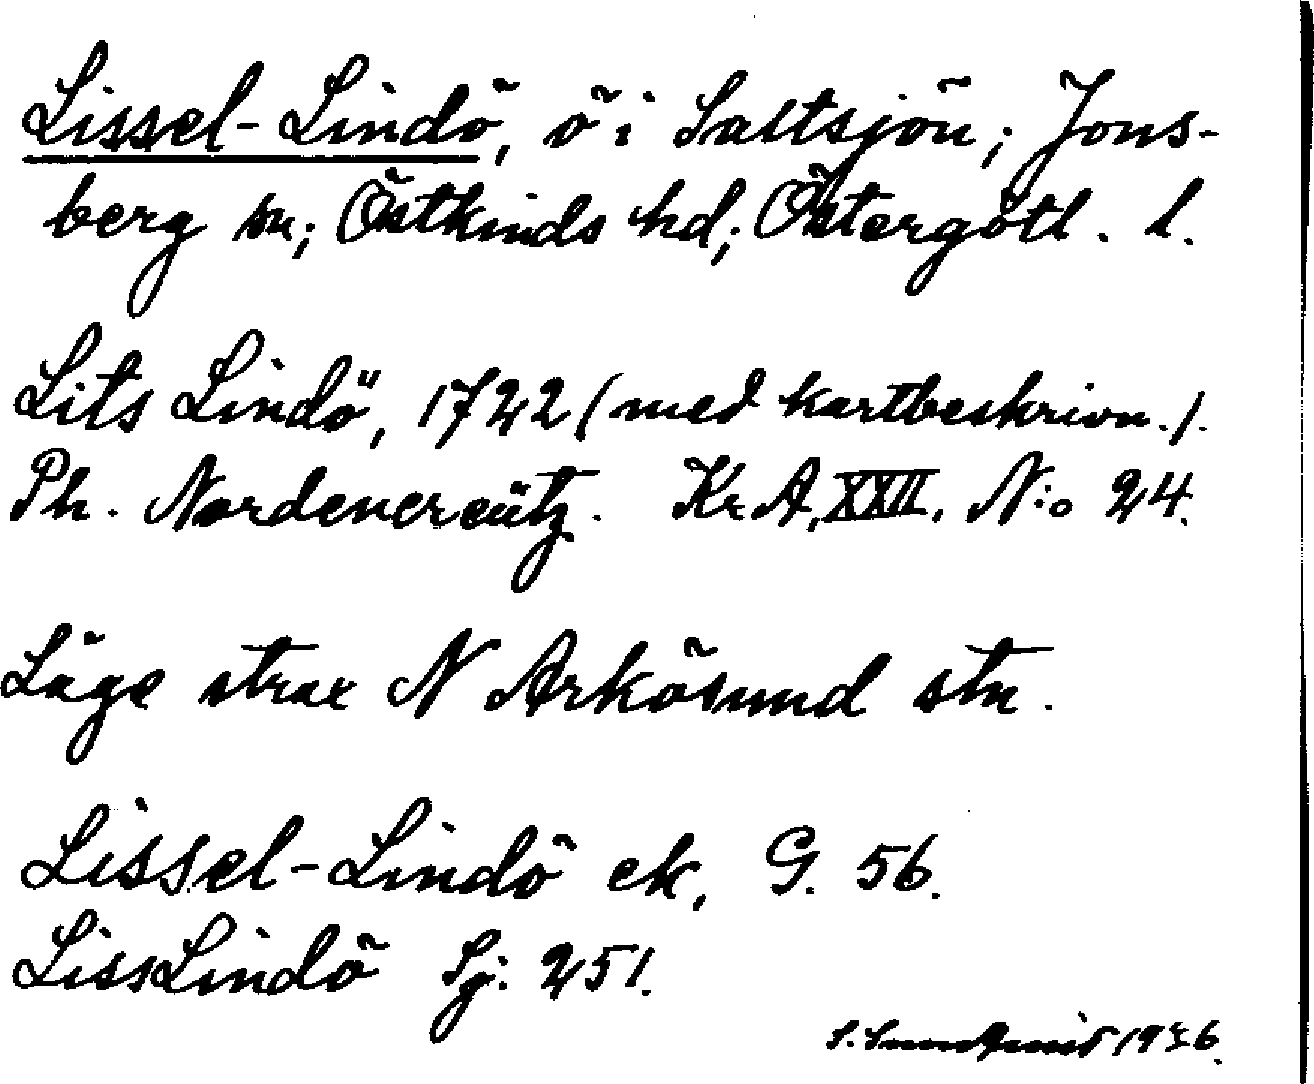 Lissel-Lindö, ö i Saltsjön; Jons-
berg sn; Östkinds hd; Östergötl. l.
Lits Lindö, 1722 (med kartbeskrivn.).
Ph. Nordencreütz. Kr A, XXII. N:o 24.
Läge strax N Arkösund stn.
Lissel-Lindö ek, G. 56.
LissLindö Sj: 251.
S. 19